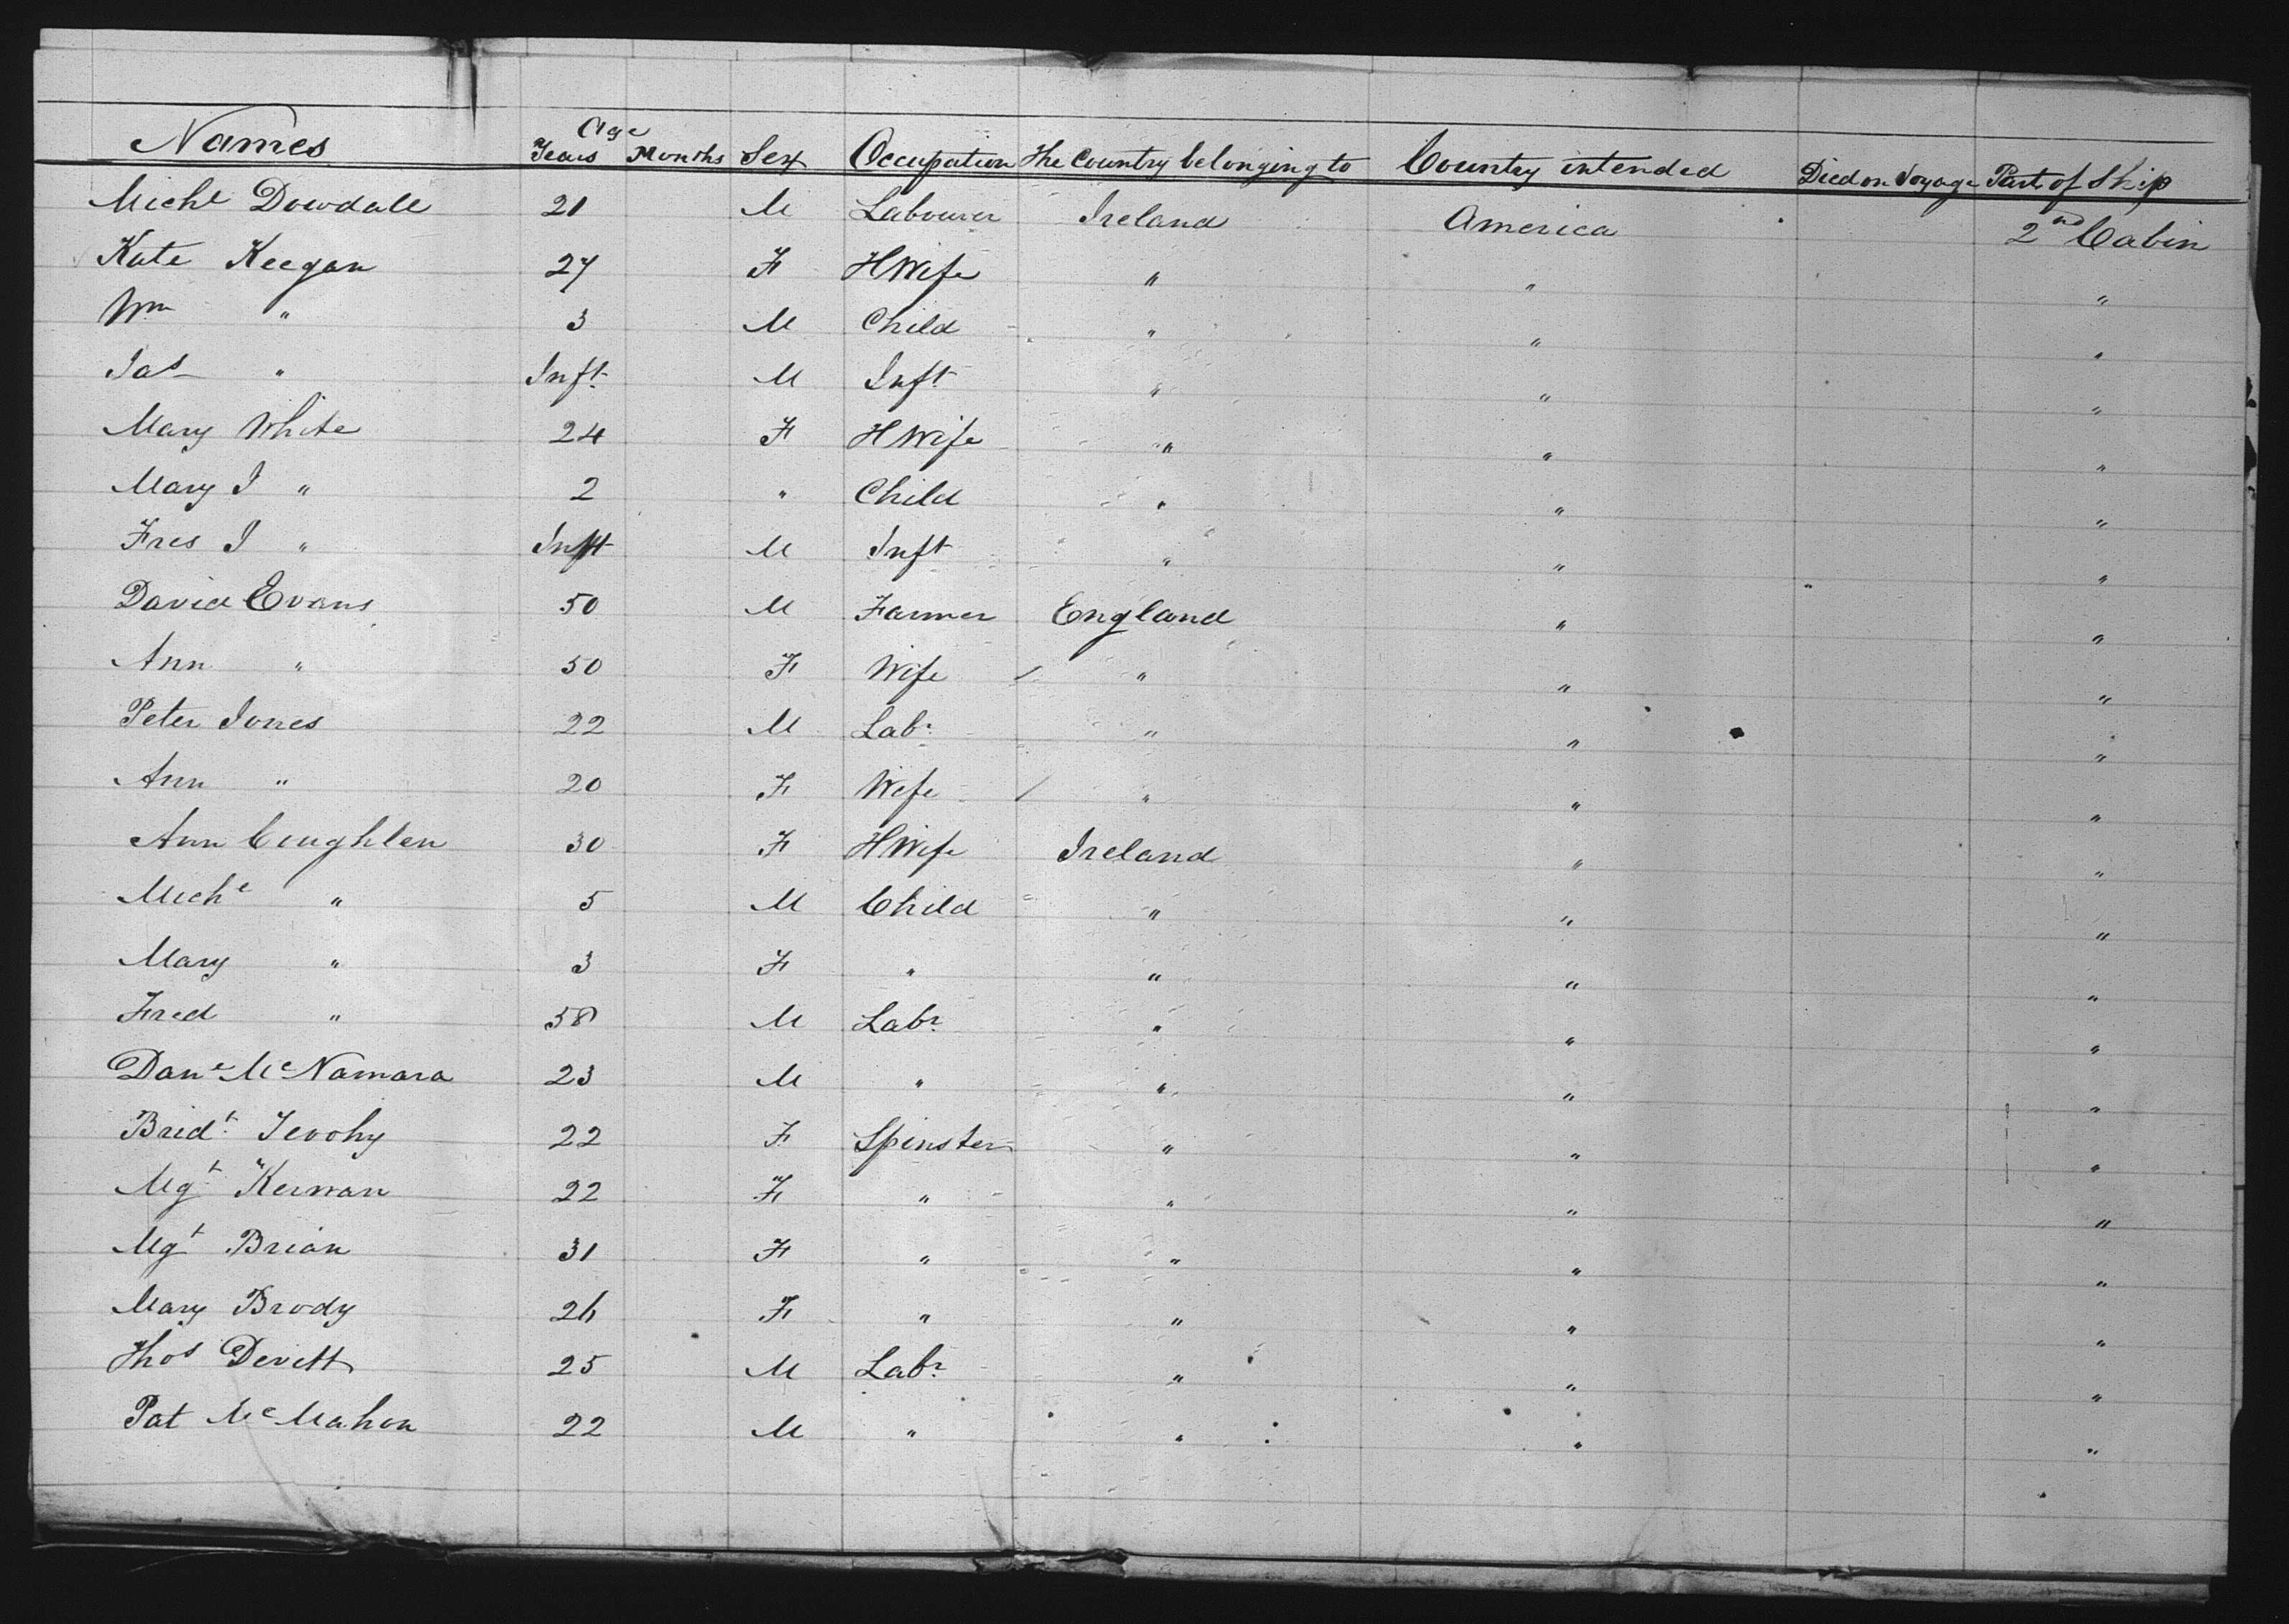 Names Age Years Months Sex Occupation The Country belonging to Country intended Died on Voyage Part of Ship
Michl Dowdall 21 M Labourer Ireland America 2nd Cabin
Kate Keegan 27 F HWife " " "
Wm " 3 M Child " " "
Jas " Inft M Inft " " "
Mary White 24 F HWife " " "
Mary J " 2 " Child " " "
Fres J " Inft M Inft " " "
David Evans 50 M Farmer England " "
Ann " 50 F Wife " " "
Peter Jones 22 M Labr " " "
Ann " 20 F Wife " " "
Ann Coughlen 30 F HWife Ireland " "
Michl " 5 M Child " " "
Mary " 3 F " " " "
Fred " 58 M Labr " " "
Danl McNamara 23 M " " " "
Bridt 22 F Spinster " " "
Mgt Kerwan 22 F " " " "
Mgt Brian 31 F " " " "
Mary Brody 26 F " " " "
Thos Devitt 25 M Labr " " "
Pat McMahon 22 M " " " "